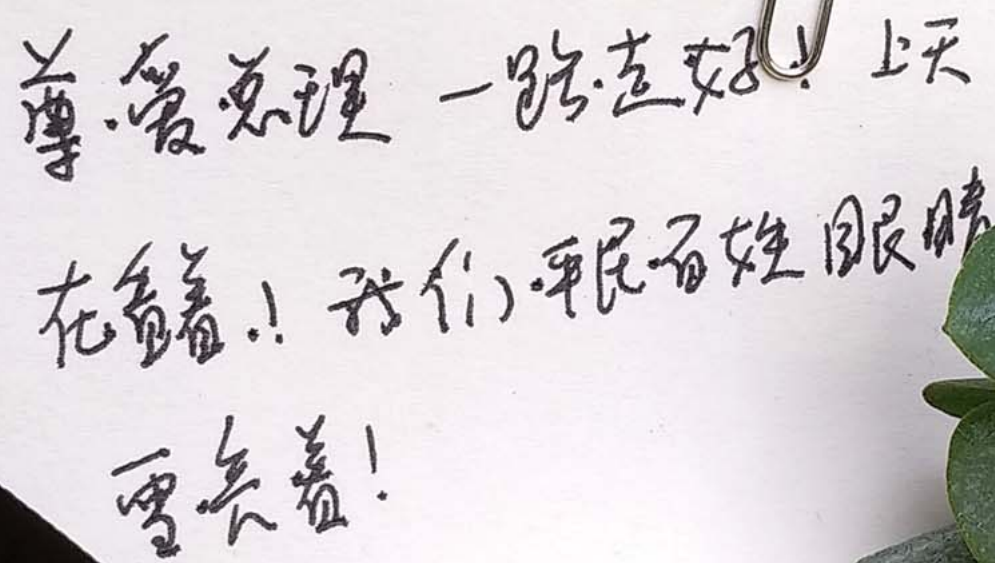 尊爱总理 一路走好！上天
在看着！我们平民百姓眼睛
雪亮着！